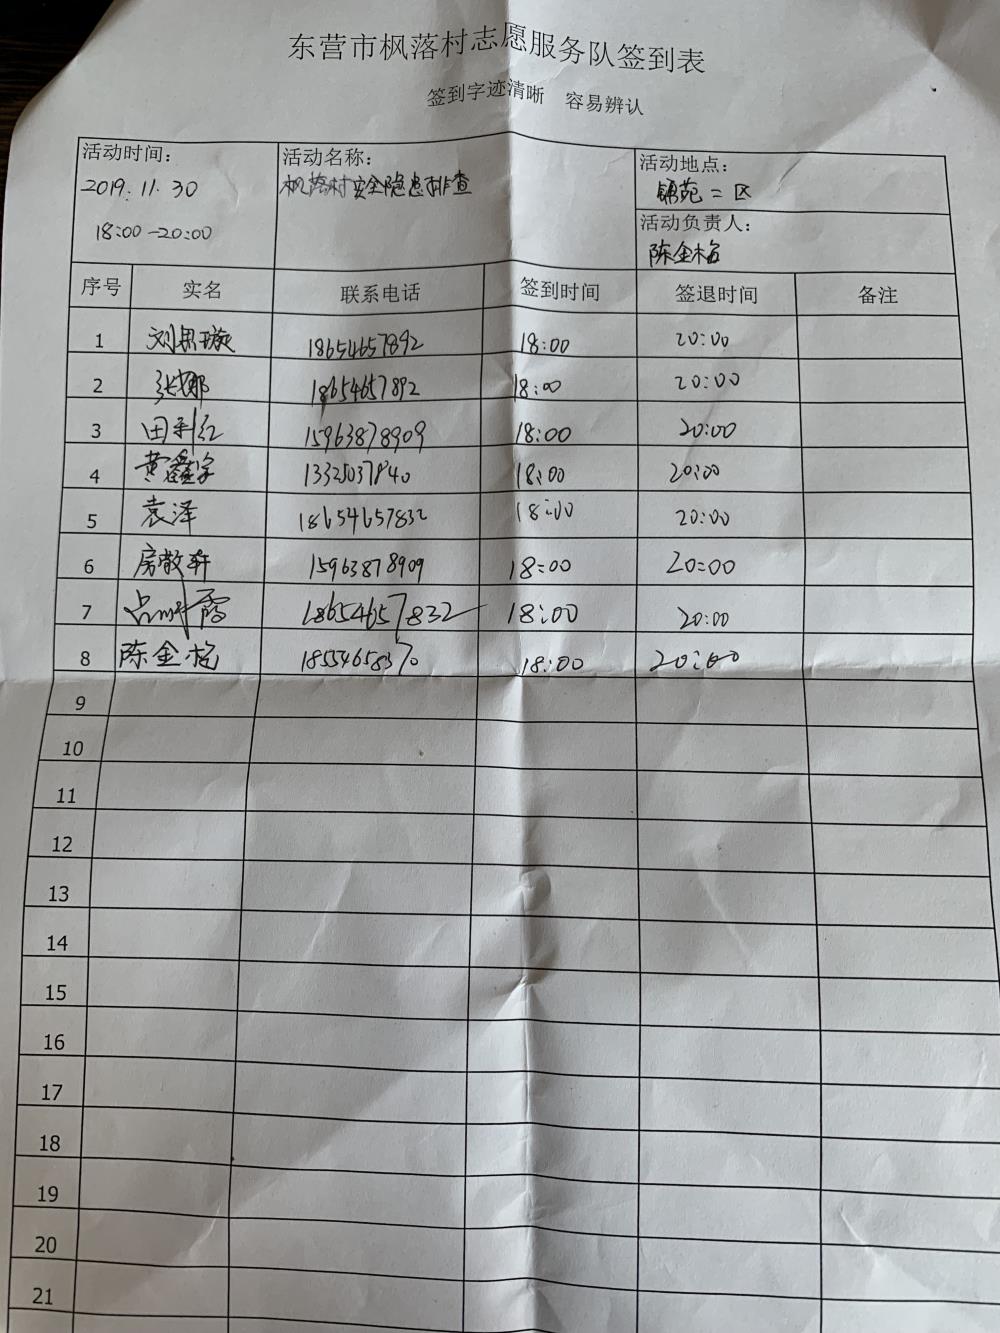 东营市枫落村志愿服务队签到表
签到字迹清晰 容易辨认
活动时间： 活动名称： 活动地点：
2019.11.30 枫落村安全隐患排查 锦苑二区
18:00-20:00 活动负责人：
陈金梅
序号 实名 联系电话 签到时间 签退时间 备注
1 刘思璇 18654657892 18:00 20:00
2 张娜 18654657892 18:00 20:00
3 田利红 15963878909 18:00 20:00
4 黄鑫宇 13325037840 18:00 20:00
5 袁泽 18654657832 18:00 20:00
6 房敬轩 15963878909 18:00 20:00
7 霞 18654657832 18:00 20:00
8 陈金梅 18554658370 18:00 20:00
9
10
11
12
13
14
15
16
17
18
19
20
21